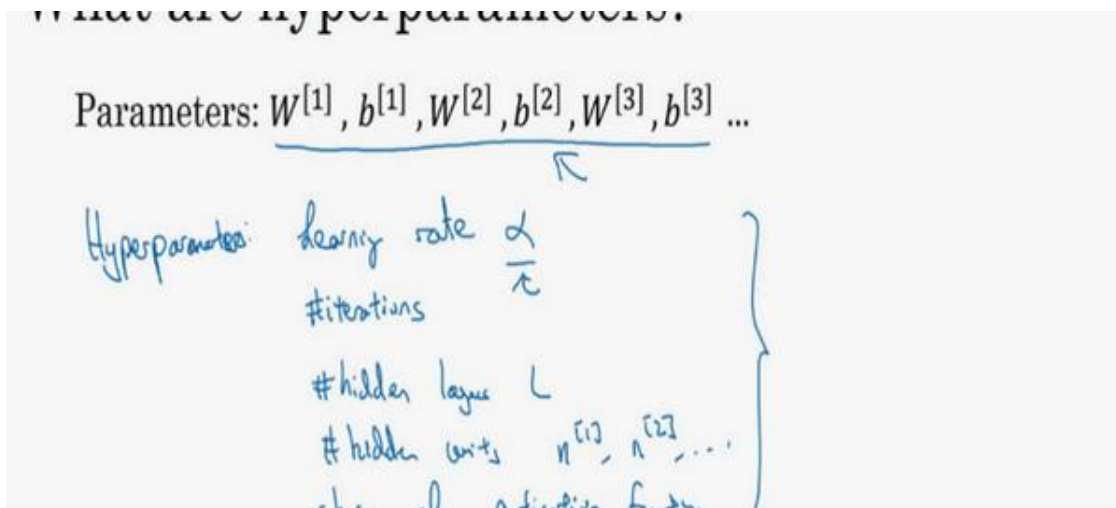 What are hyperparameters?
Parameters: W^[1], b^[1], W^[2], b^[2], W^[3], b^[3] ...
Hyperparameters: Learning rate α
#iterations
#hidden layers L
#hidden units n^[1], n^[2], ....
choice of activation function